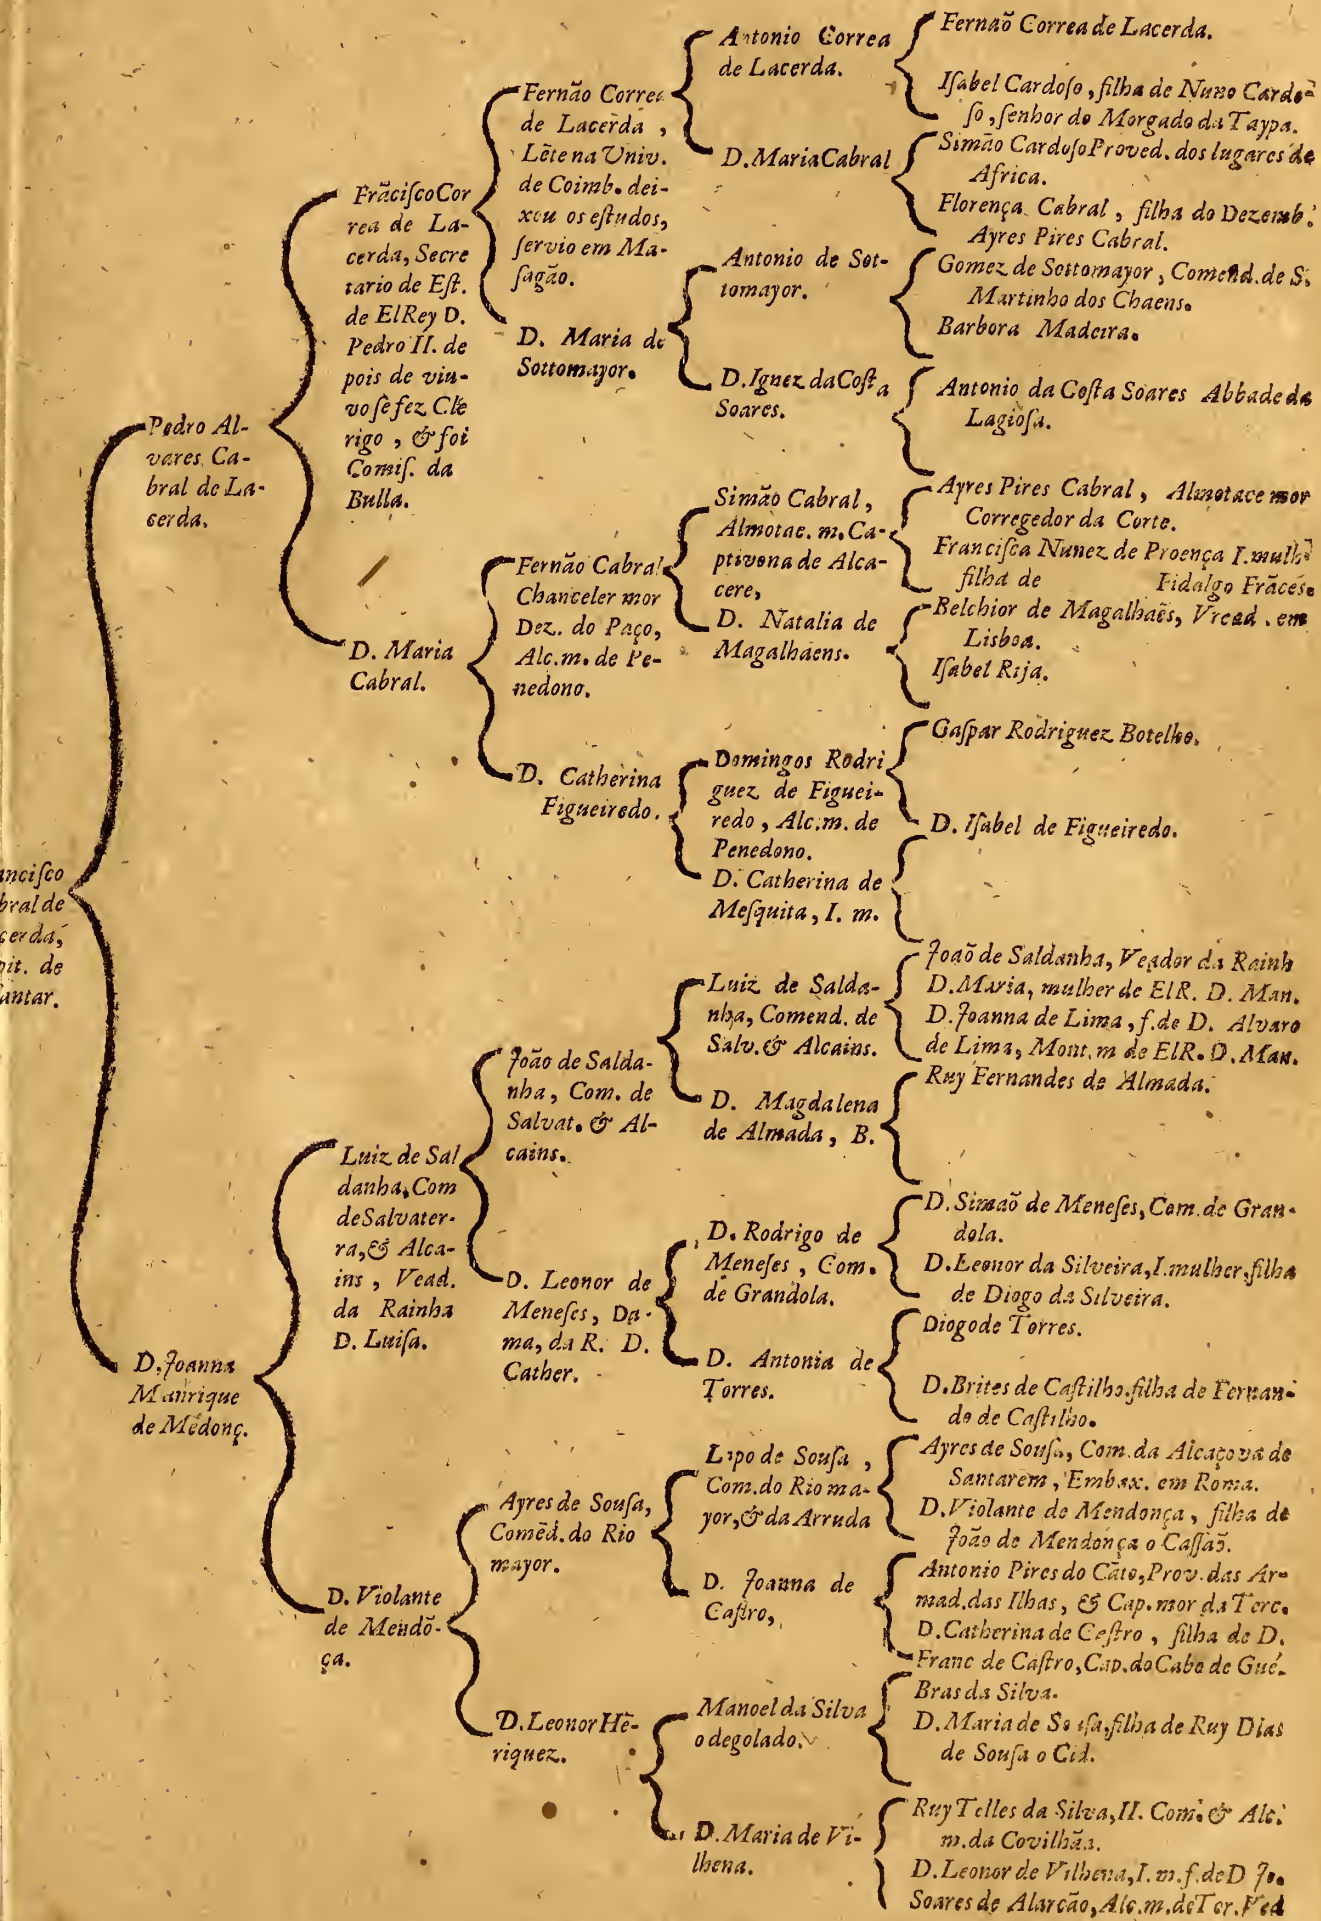 ancisco
bral de
cerda,
pit. de
antar.
Pedro Al-
vares Ca-
bral de La-
cerda.
D. Joanna
Manrique
de Mẽdonç.
FrãciſcoCor
rea de La-
cerda, Secre
tario de Eſt.
de ElRey D.
Pedro II. de
pois de viu-
vo ſe fez Cle
rigo , & foi
Comiſ. da
Bulla.
D. Maria
Cabral.
Luiz de Sal
danha, Com
de Salvater-
ra, & Alca-
ins , Vead.
da Rainha
D. Luiſa.
D. Violante
de Mendõ-
ça.
Fernão Correa
de Lacerda ,
Lẽte na Univ.
de Coimb. dei-
xou os eſtudos,
ſervio em Ma-
ſagão.
D. Maria de
Sottomayor.
Fernão Cabral
Chanceler mor
Dez. do Paço,
Alc. m. de Pe-
nedono.
D. Catherina
Figueiredo.
João de Salda-
nha, Com. de
Salvat. & Al-
cains.
D. Leonor de
Meneſes, Da-
ma, da R. D.
Cather.
Ayres de Souſa,
Comẽd. do Rio
mayor.
D. Leonor Hẽ-
riquez.
Antonio Correa
de Lacerda.
D. Maria Cabral
Antonio de Sot-
tomayor.
D. Ignez da Coſta
Soares.
Simão Cabral,
Almotac. m. Ca-
ptivo na de Alca-
cere,
D. Natalia de
Magalhaens.
Domingos Rodri
guez de Figuei-
redo , Alc. m. de
Penedono.
D. Catherina de
Meſquita, I. m.
Luiz de Salda-
nha, Comend. de
Salv. & Alcains.
D. Magdalena
de Almada, B.
D. Rodrigo de
Meneſes , Com.
de Grandola.
D. Antonia de
Torres.
Lopo de Souſa ,
Com. do Rio ma-
yor, & da Arruda
D. Joanna de
Caſtro,
Manoel da Silva
o degolado.
D. Maria de Vi-
lhena.
Fernaõ Correa de Lacerda.
Iſabel Cardoſo , filha de Nuno Cardo-
ſo , ſenhor do Morgado da Taypa.
Simão Cardoſo Proved. dos lugares de
Africa.
Florença Cabral , filha do Dezemb.
Ayres Pires Cabral.
Gomez de Sottomayor , Comend. de S.
Martinho dos Chaens.
Barbora Madeira.
Antonio da Coſta Soares Abbade da
Lagioſa.
Ayres Pires Cabral , Almotace mor
Corregedor da Corte.
Franciſca Nunez de Proença I. mulh.
filha de Fidalgo Frãcés.
Belchior de Magalhaẽs, Vread. em
Lisboa.
Iſabel Rija.
Gaſpar Rodriguez Botelho.
D. Iſabel de Figueiredo.
Joaõ de Saldanha, Veador da Rainh
D. Maria, mulher de ElR. D. Man.
D. Joanna de Lima , f. de D. Alvaro
de Lima, Mont. m de ElR. D. Man.
Ruy Fernandes de Almada.
D. Simaõ de Meneſes, Com. de Gran-
dola.
D. Leonor da Silveira, I. mulher, filha
de Diogo da Silveira.
Diogo de Torres.
D. Brites de Caſtilho, filha de Fernan-
do de Caſtilho.
Ayres de Souſa, Com. da Alcaçova de
Santarem , Embax. em Roma.
D. Violante de Mendonça , filha de
João de Mendonça o Caſſaõ.
Antonio Pires do Cãto, Prov. das Ar-
mad. das Ilhas , & Cap. mor da Terc.
D. Catherina de Caſtro , filha de D.
Franc de Caſtro, Cap. do Cabo de Gué.
Bras da Silva.
D. Maria de Souſa, filha de Ruy Dias
de Souſa o Cid.
Ruy Telles da Silva, II. Com. & Alc.
m. da Covilhãa.
D. Leonor de Vilhena, I. m. f. de D Jo.
Soares de Alarcão, Alc. m. de Tor. Ved